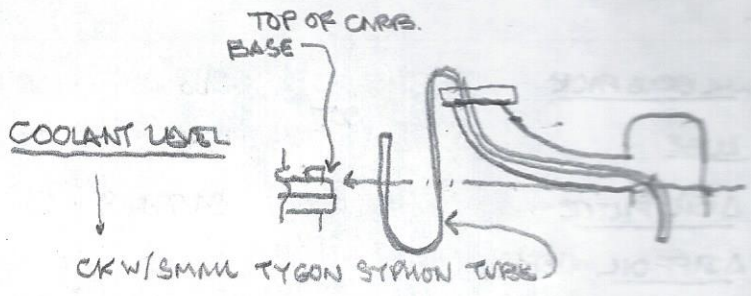 TOP OF CARB.
BASE
COOLANT LEVEL
CK W/ SMALL TYGON SYPHON TUBE